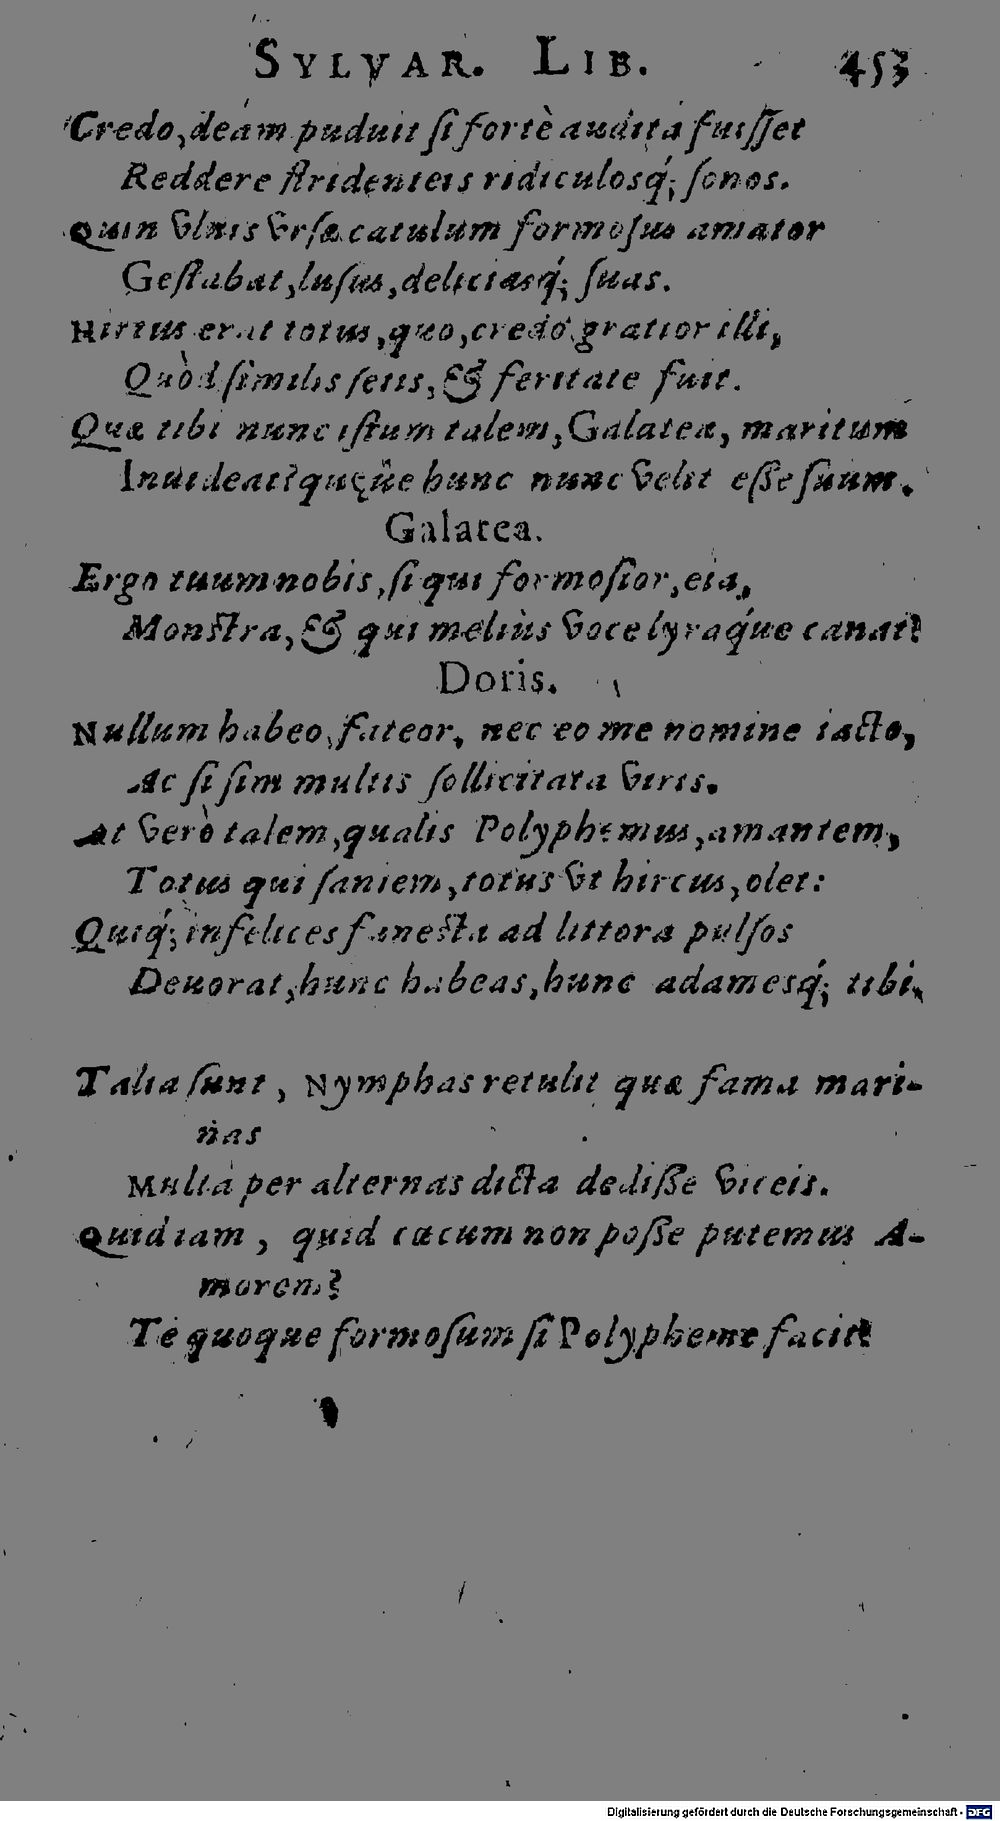 SYLVAR. LIB. 453
Credo, deam puduit ſi fortè audita fuiſſet
Reddere ſtridenteis ridiculosq́; ſonos.
Quin vlnis vrſæ catulum formoſus amator
Geſtabat, luſus, deliciasq́; ſuas.
Hirtus erat totus, quo, credo gratior illi,
Quòd ſimilis ſetis, & feritate fuit.
Quæ tibi nunc iſtum talem, Galatea, maritum
Inuideat? quęue hunc nunc velit eſſe ſuum.
Galatea.
Ergo tuum nobis, ſi qui formoſior, eia,
Monſtra, & qui meliùs voce lyraq́ue canat?
Doris.
Nullum habeo, fateor, nec eo me nomine iacto,
Ac ſi ſim multis ſollicitata viris.
At verò talem, qualis Polyphemus, amantem,
Totus qui ſaniem, totus vt hircus, olet:
Quiq́; infelices funeſta ad littora pulſos
Deuorat, hunc habeas, hunc adamesq́; tibi.
Talia ſunt, Nymphas retulit quæ fama mari-
nas
Multa per alternas dicta dediſſe viceis.
Quid iam, quid cæcum non poſſe putemus A-
morem?
Te quoque formoſum ſi Polypheme facit?
Digitalisierung gefördert durch die Deutsche Forschungsgemeinschaft - DFG